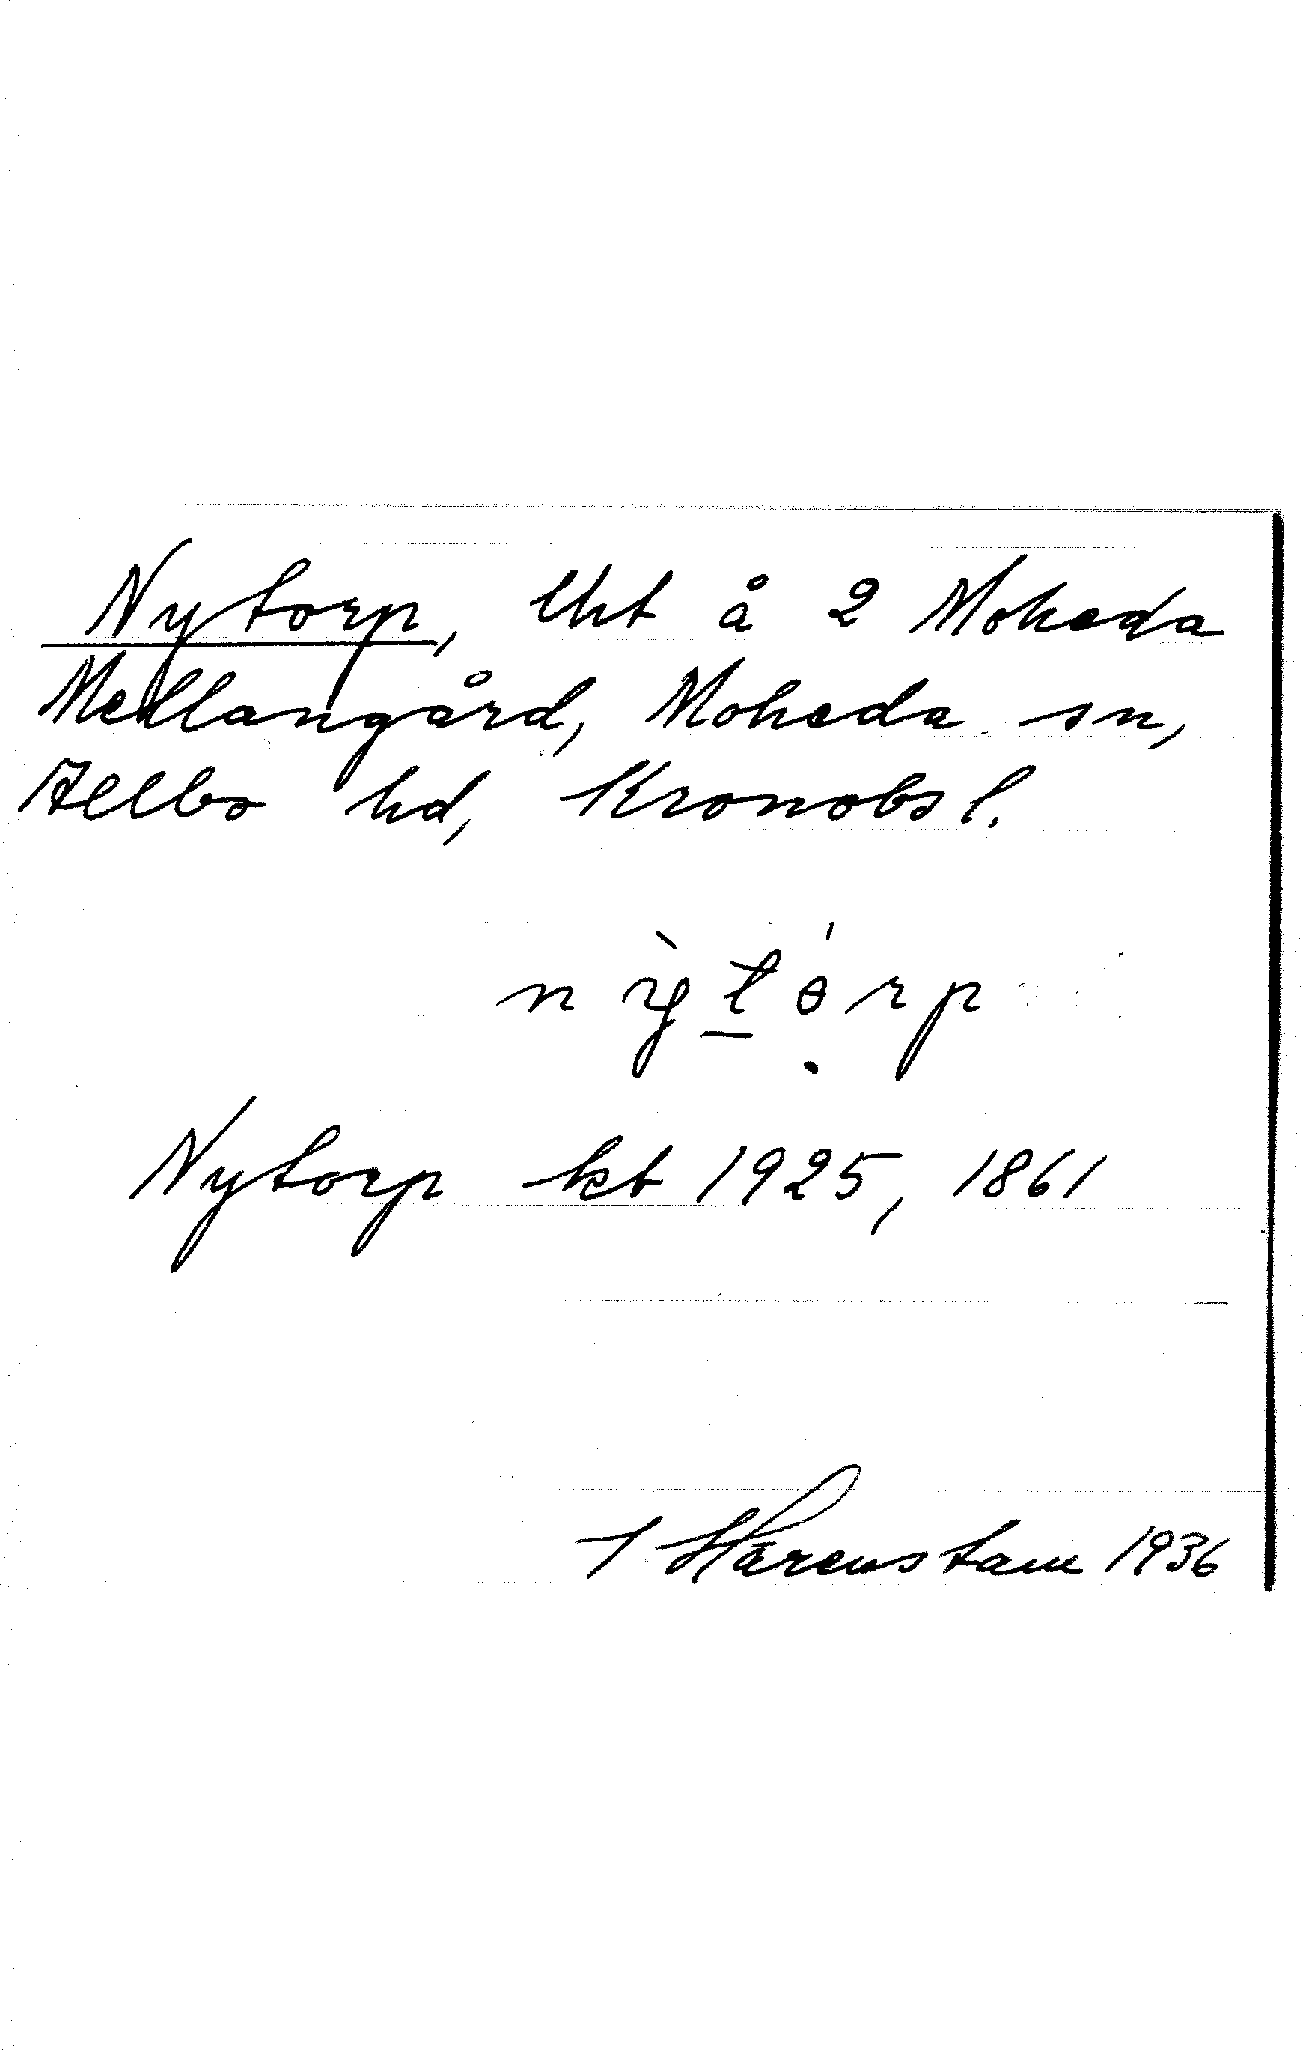 Nytorp, lht å 2 Moheda
Mellangård, Moheda sn,
Allbo hd, Kronobs l.
nỳtɵ́rp
Nytorp kt 1925, 1861
Härenstam 1936